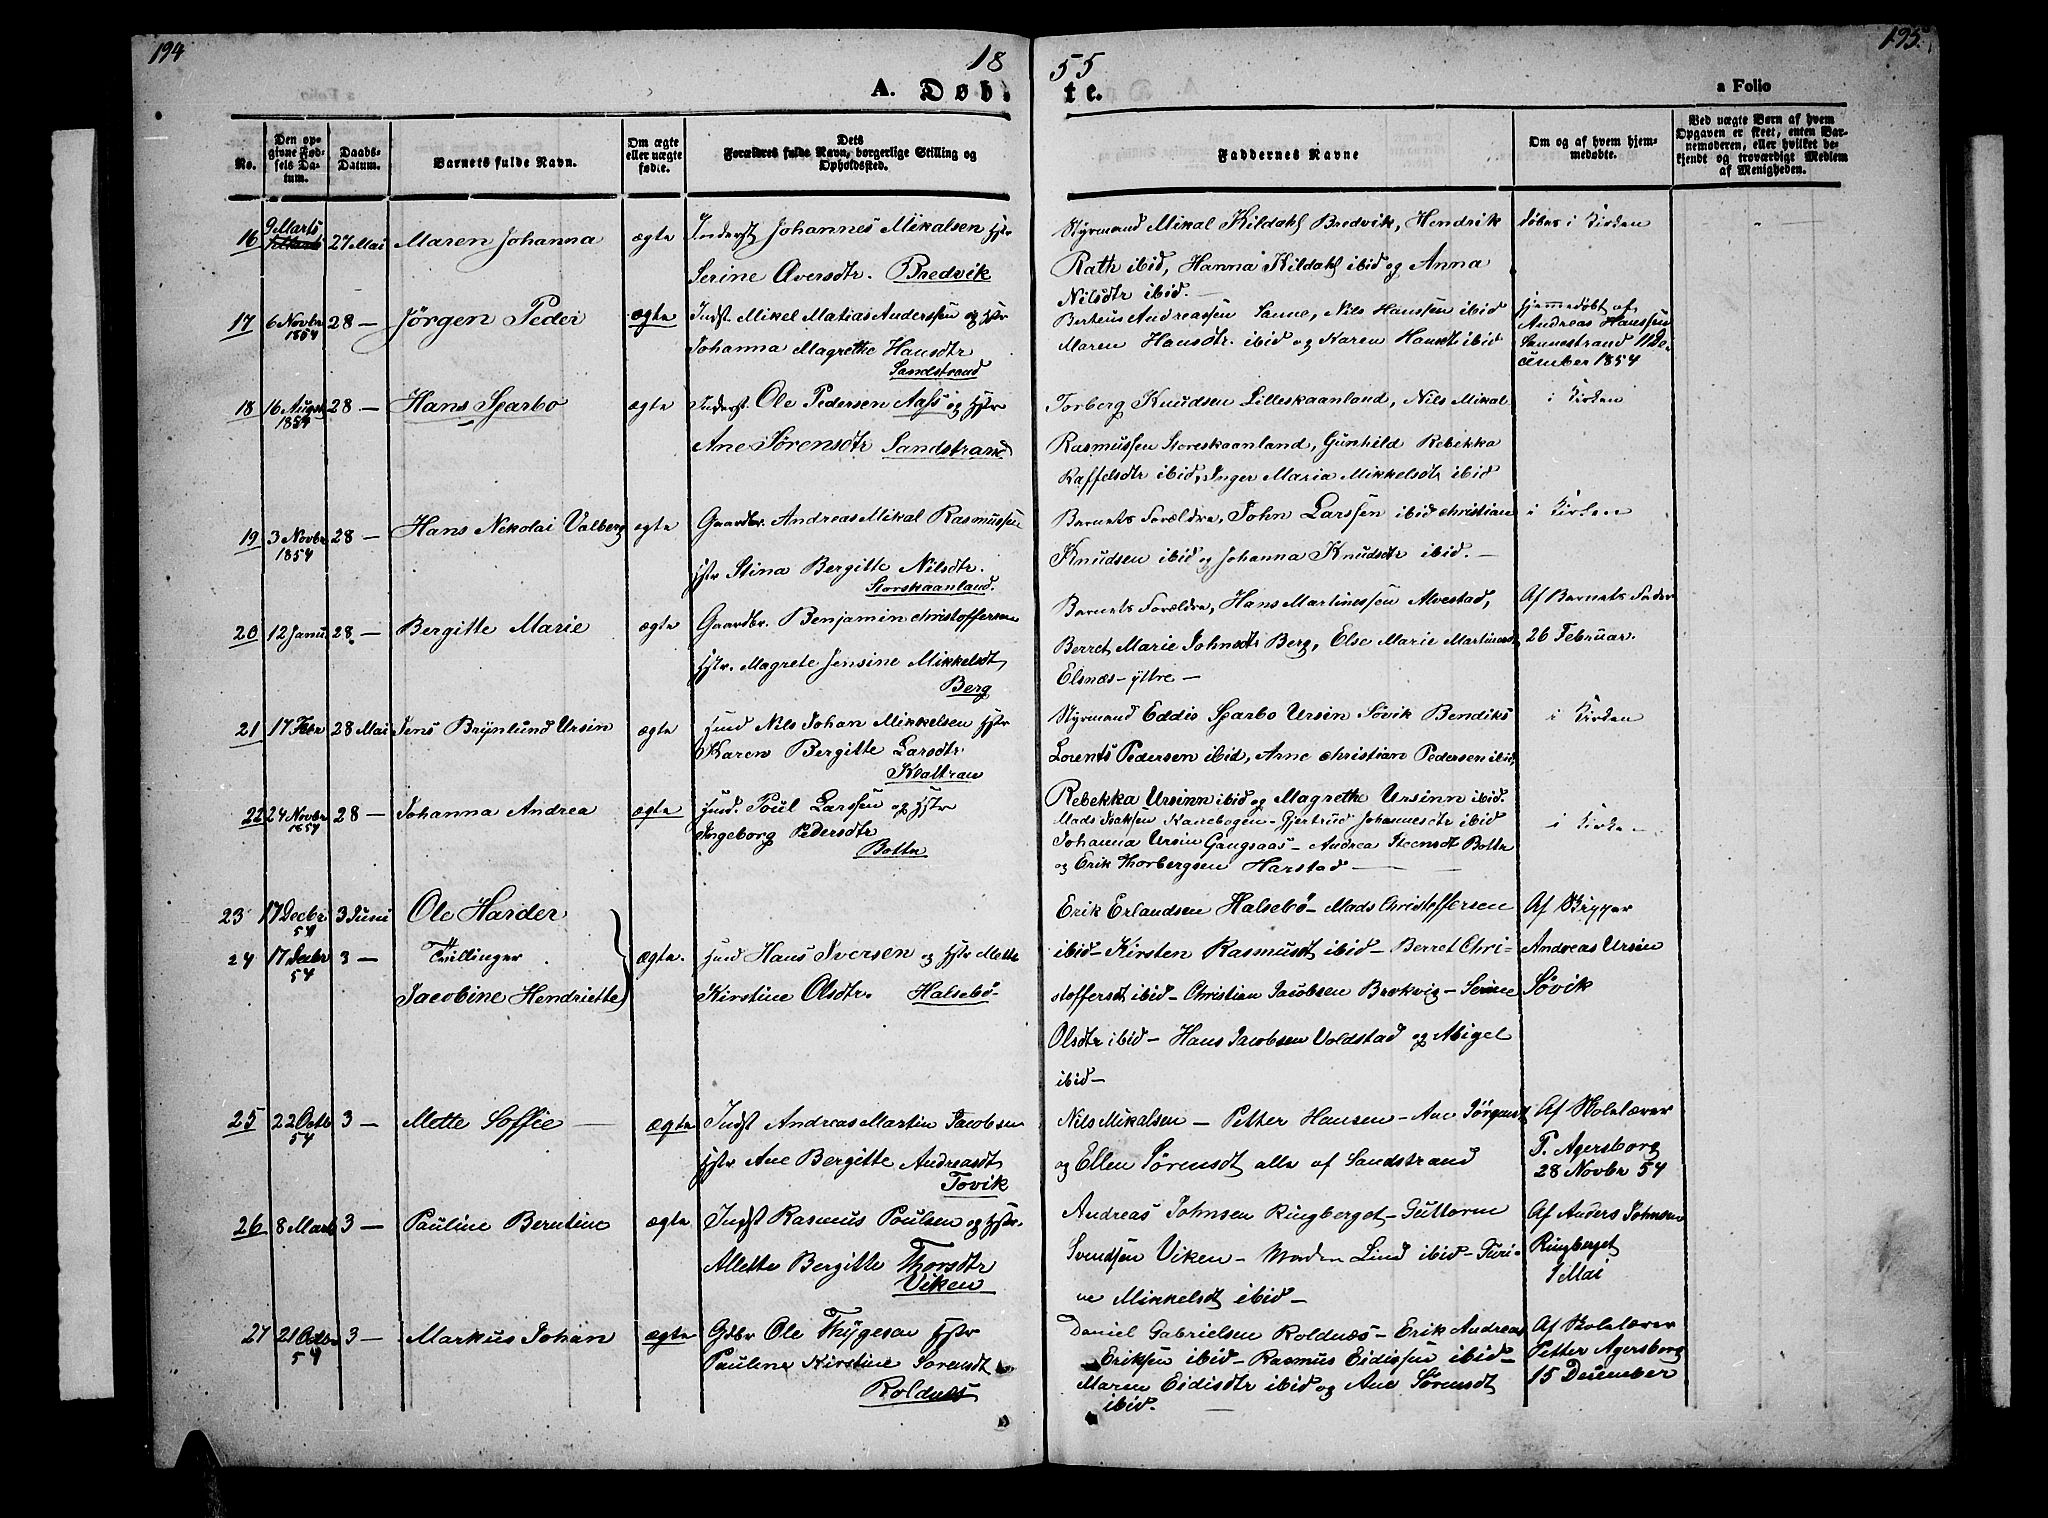 194
18
55
195
A. Døb-
te.
a Folio
No.
Den op-
givne Fød-
sels Da-
tum.
Daabs-
Datum.
Barnets fulde Navn.
Om ægte
eller uægte
fødte.
Dets
Forældres fulde Navn, borgerlige Stilling og
Opholdssted.
Faddernes Navne
Om og af hvem hjem-
medøbte.
Ved uægte Børn af hvem
Opgaven er skeet, enten Bar-
nemoderen, eller hvilket be-
kjendt og troværdigt Medlem
af Menigheden.
16
9 Marts
27 Mai
Maren Johanna
ægte
Inderst Johannes Mikalsen Hstr
Serine Aversdtr. Bredvik
Styrmand Mikal Kildahl Bredvik, Hendrik
Rath ibid, Hanna Kildahl ibid og Anna
Nilsdtr ibid. —
døbt i Kirken
17
6 Novbr
1854
28 —
Jörgen Peder
ægte
Indst. Mikel Matias Anderssen og Hstr
Johanna Magrethe Hansdtr
Sandstrand
Berteus Andreassen Sanne, Nils Hanssen ibid
Maren Hansdtr. ibid og Karen Hansdt ibid
Hjemmedøbt af
Andreas Hanssen
Sannestrand 11 De-
cember 1854
18
16 August
1854
28 —
Hans Sparbo
ægte
Inderst. Ole Pedersen Aass og Hstr
Ane Sörensdtr Sandstrand
Torberg Knudsen Lilleskaanland, Nils Mikal
Rasmussen Storeskaanland, Gunhild Rebekka
Raffelsdtr ibid, Inger Maria Mikkelsdt ibid
i Kirken
19
3 Novbr
1854
28 —
Hans Nekolai Valberg
ægte
Gaardbr. Andreas Mikal Rasmussen
Hstr Stina Bergitte Nilsdtr.
Storskaanland.
Barnets Forældre, John Larssen ibid Christian
Knudsen ibid og Johanna Knudsdtr ibid. —
i Kirken
20
12 Janu.
28 —
Bergitte Marie
ægte
Gaardbr. Benjamin Christoffersen
Hstr. Magrete Jensine Mikkelsdt
Berg
Barnets Forældre, Hans Martinessen Alvestad,
Berret Marie Johnsdtr Berg, Else Marie Martinusdt
Elsnæs-yttre —
Af Barnets Fader
26 Februar.
21
17 Febr
28 Mai
Jens Brynlund Ursin
ægte
Hmd Nils Johan Mikkelsen Hstr
Karen Bergitte Larsdtr
Kjeltran
Styrmand Eddis Sparbo Ursin Sövik Bendiks
Lorents Pedersen ibid, Arne Christian Pedersen ibid,
Rebekka Ursinn ibid og Magrethe Ursinn ibid.
i Kirken
22
24 Novbr
1854
28 —
Johanna Andrea
ægte
Hmd. Poul Larssen og Hstr
Ingeborg Pedersdtr
Botte
Mads Isaksen Kanebogen — Gjertrud Johannesdtr ibid
Johanna Ursin Gangsaas — Andrea Steensdt Botte
og Erik Thorbergsen Harstad —
i Kirken
23
17 Decbr
54
3 Juni
Ole Harder
24
17 Decbr
54
3 —
Tvillinger
Jacobine Hendriette
ægte.
Hmd Hans Iversen og Hstr Mette
Kirstine Olsdtr. Halsebö—
Erik Erlandsen Halsebö — Mads Christoffersen
ibid — Kirsten Rasmusdt ibid — Berret Chri-
stoffersdt ibid — Christian Jacobsen Brokvig — Serine
Olsdtr ibid — Hans Jacobsen Voldstad og Abigel
ibid —
Af Skipper
Andreas Ursin
Sövik
25
22 Octb
54
3 —
Mette Soffie —
ægte
Indst Andreas Martin Jacobsen
Hstr Ane Bergitte Andreasdt
Tovik
Nils Mikalsen — Petter Hansen — Ane Jörgensdt
og Ellen Sörensdt alle af Sandstrand
Af Skolelærer
P. Agersborg
28 Novbr 54
26
8 Marts
3 —
Pauline Berntine
ægte
Indst Rasmus Poulsen og Hstr.
Allette Bergitte Thorsdtr
Viken
Andreas Johnsen Ringberget — Guttorm
Svendsen Viken — Maren Lind ibid — Turi-
ne Mikkelsdt ibid —
Af Anders Johnsen
Ringberget
1 Mai
27
21 Octbr
54
3 —
Markus Johan
ægte
Gdbr Ole Thygesen Hstr
Pauline Kirstine Sorensdt
Roldnes
Daniel Gabrielsen Roldnæs — Erik Andreas
Eriksen ibid — Rasmus Eidissen ibid —
Maren Eidisdtr ibid og Ane Sörensdt
ibid. —
Af Skolelærer
Petter Agersborg
15 December